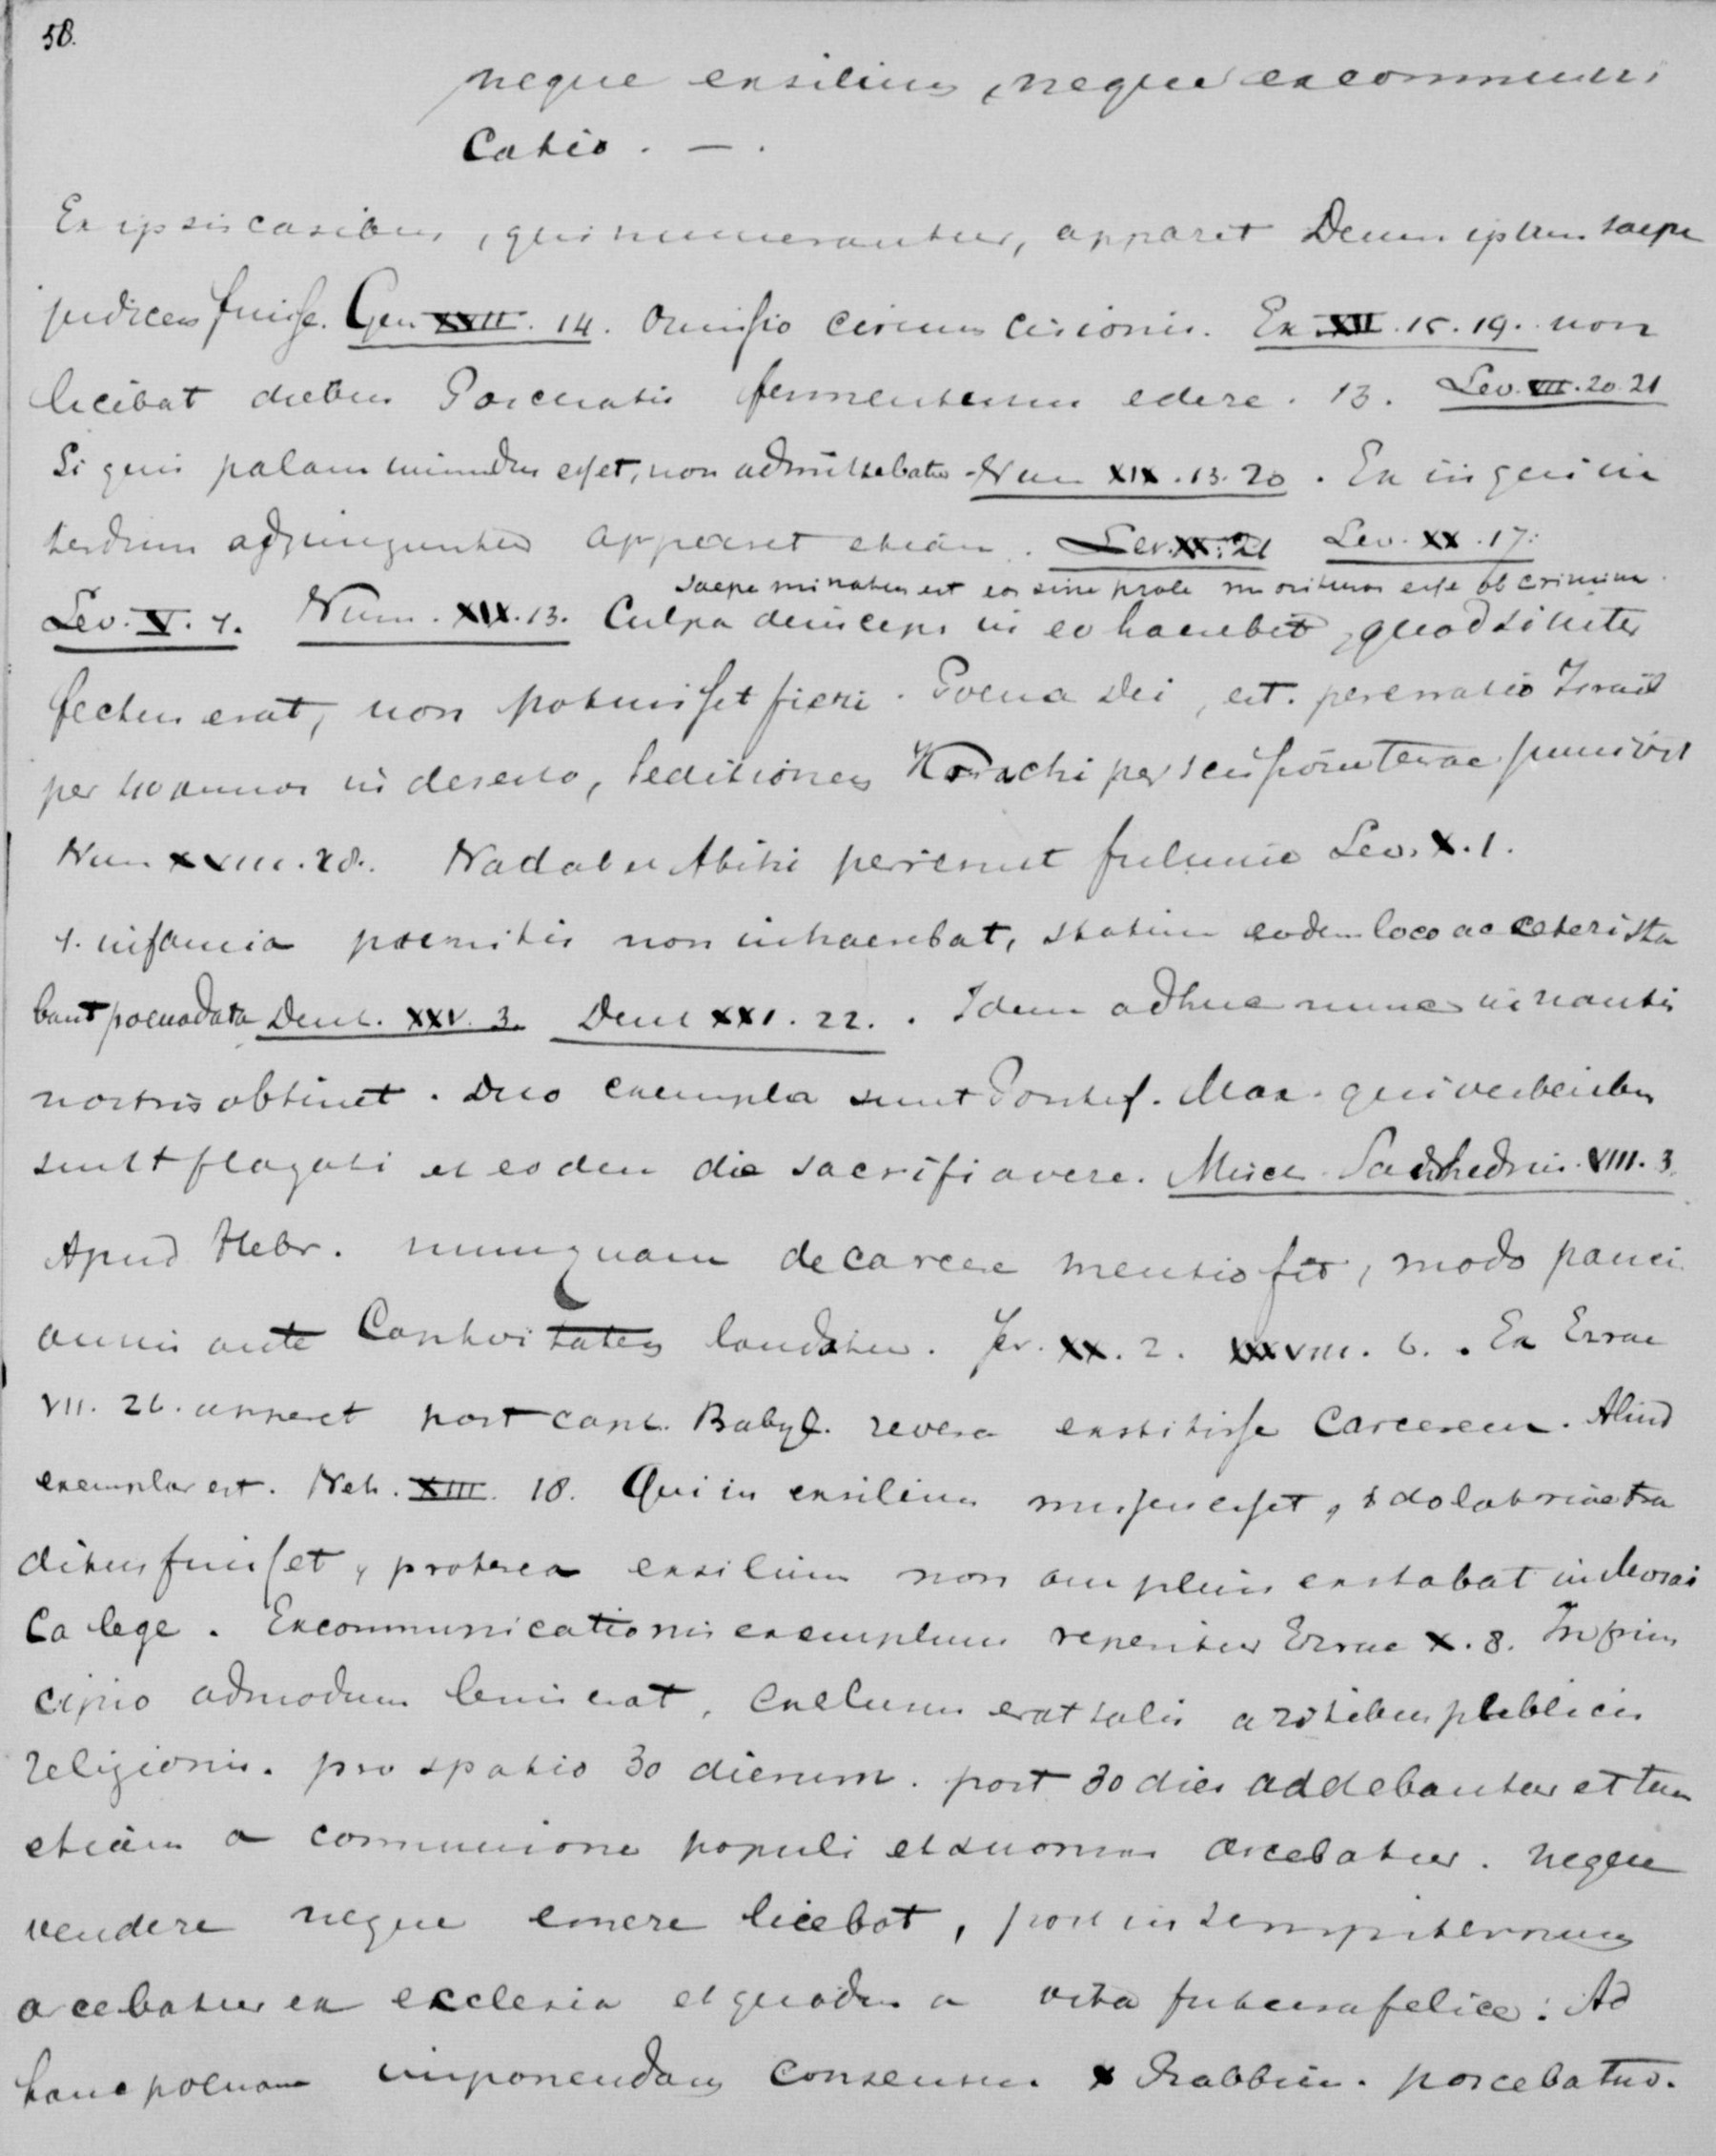 58.
neque exsilium, neque excommuni
catio. — .
Ex ipsis casibus, qui numerantur, apparet Deum ipsum saepe
judicem fuisse. Gen XVII. 14. Omissio circumcisionis. Ex XII. 15. 19. non
licebat diebus Paschatis fermentum edere. 13. Lev. VII. 20. 21
Si quis palam immundus esset, non admittebatur Num XIX. 13. 20. Ex iis quin in
terdum adjunguntur appearet etiam. Lev. XX. 21 Lev. XX. 17.
saepe minatus est eos sine prole morituros esse ob crimina.
Lev. V. 4. Num. XIX. 13. Culpa deinceps in eo haerebit, quod si iuter
fectus erat, non potuisset fieri. Poena Dei, est. pererratio Israel
per 40 annos in deserto, seditionem Korachi per scissionem terrae punivit
Num XVIII. 28. Nadab et Abihu perierunt fulmine Lev. X. 1.
4. infamia poenitis non inhaerebat, statim eodem loco ac ceteri sta
bant poena data Deut. XXV. 3. Deut XXI. 22. . Idem adhuc nunc in nautis
nostris obtinet. Duo exempla sunt Pontif. Max. qui verberibus
sunt flagati et eodem die sacrifiavere. Misch. Sanhedrin. VIII. 3.
Apud Hebr. nunquam de carcere mentio fit, modo pauci
annis ante Captivitatem laudatur. Jer. XX. 2. XXXVIII. 6. . Ex Ezrae
VII. 26. apparet post capt. Babyl. revera exstitisse carcerem. Aliud
exemplar est. Neh. XIII. 18. Qui in exsilium missus esset, idolatriae tra
ditus fuisset, proterea exsilium non amplius exstabat in Mosai
ca lege. Excommunicationis exemplum reperitur Ezrae X. 8. In prin
cipio admodum lenis erat, exclusus erat talis a ritibus publicis
religionis. pro spatio 30 dierum. post 30 dies addebantur et tum
etiam a communione populi et suorum arcebatur. neque
vendere neque emere licebat, post in sempiternum
arcebatur ex ecclesia et quodam a vita futura felice: Ad
hanc poenam imponendam consensus x Rabbin. poscebatur.